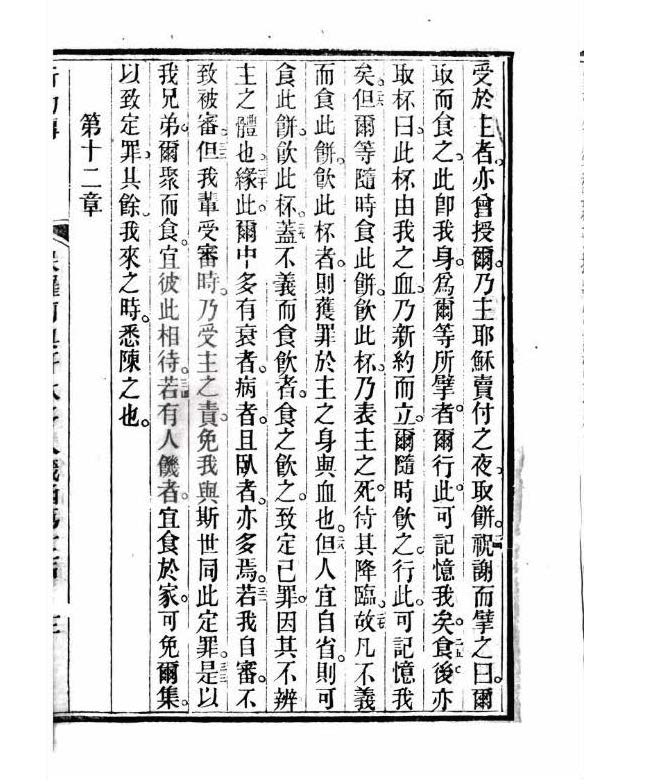 受於主者。亦曾授爾。乃主耶穌賣付之夜。取餅。祝謝而擘之曰。爾
取而食之。此卽我身。爲爾等所擘者。爾行此。可記憶我矣。食後亦
取杯曰。此杯由我之血。乃新約而立。爾隨時飮之。行此。可記憶我
矣。但爾等隨時食此餅。飮此杯。乃表主之死。待其降臨。故凡不義
而食此餅。飮此杯者。則獲罪於主之身與血也。但人宜自省。則可
食此餅。飮此杯。蓋不義而食飮者。食之飮之。致定已罪。因其不辨
主之體也。緣此。爾中多有衰者。病者。且臥者。亦多焉。若我自審。不
致被審。但我輩受審時。乃受主之責。免我與斯世同此定罪。是以
我兄弟。爾聚而食。宜彼此相待。若有人饑者。宜食於家。可免爾集。
以致定罪。其餘。我來之時。悉陳之也。
第十二章